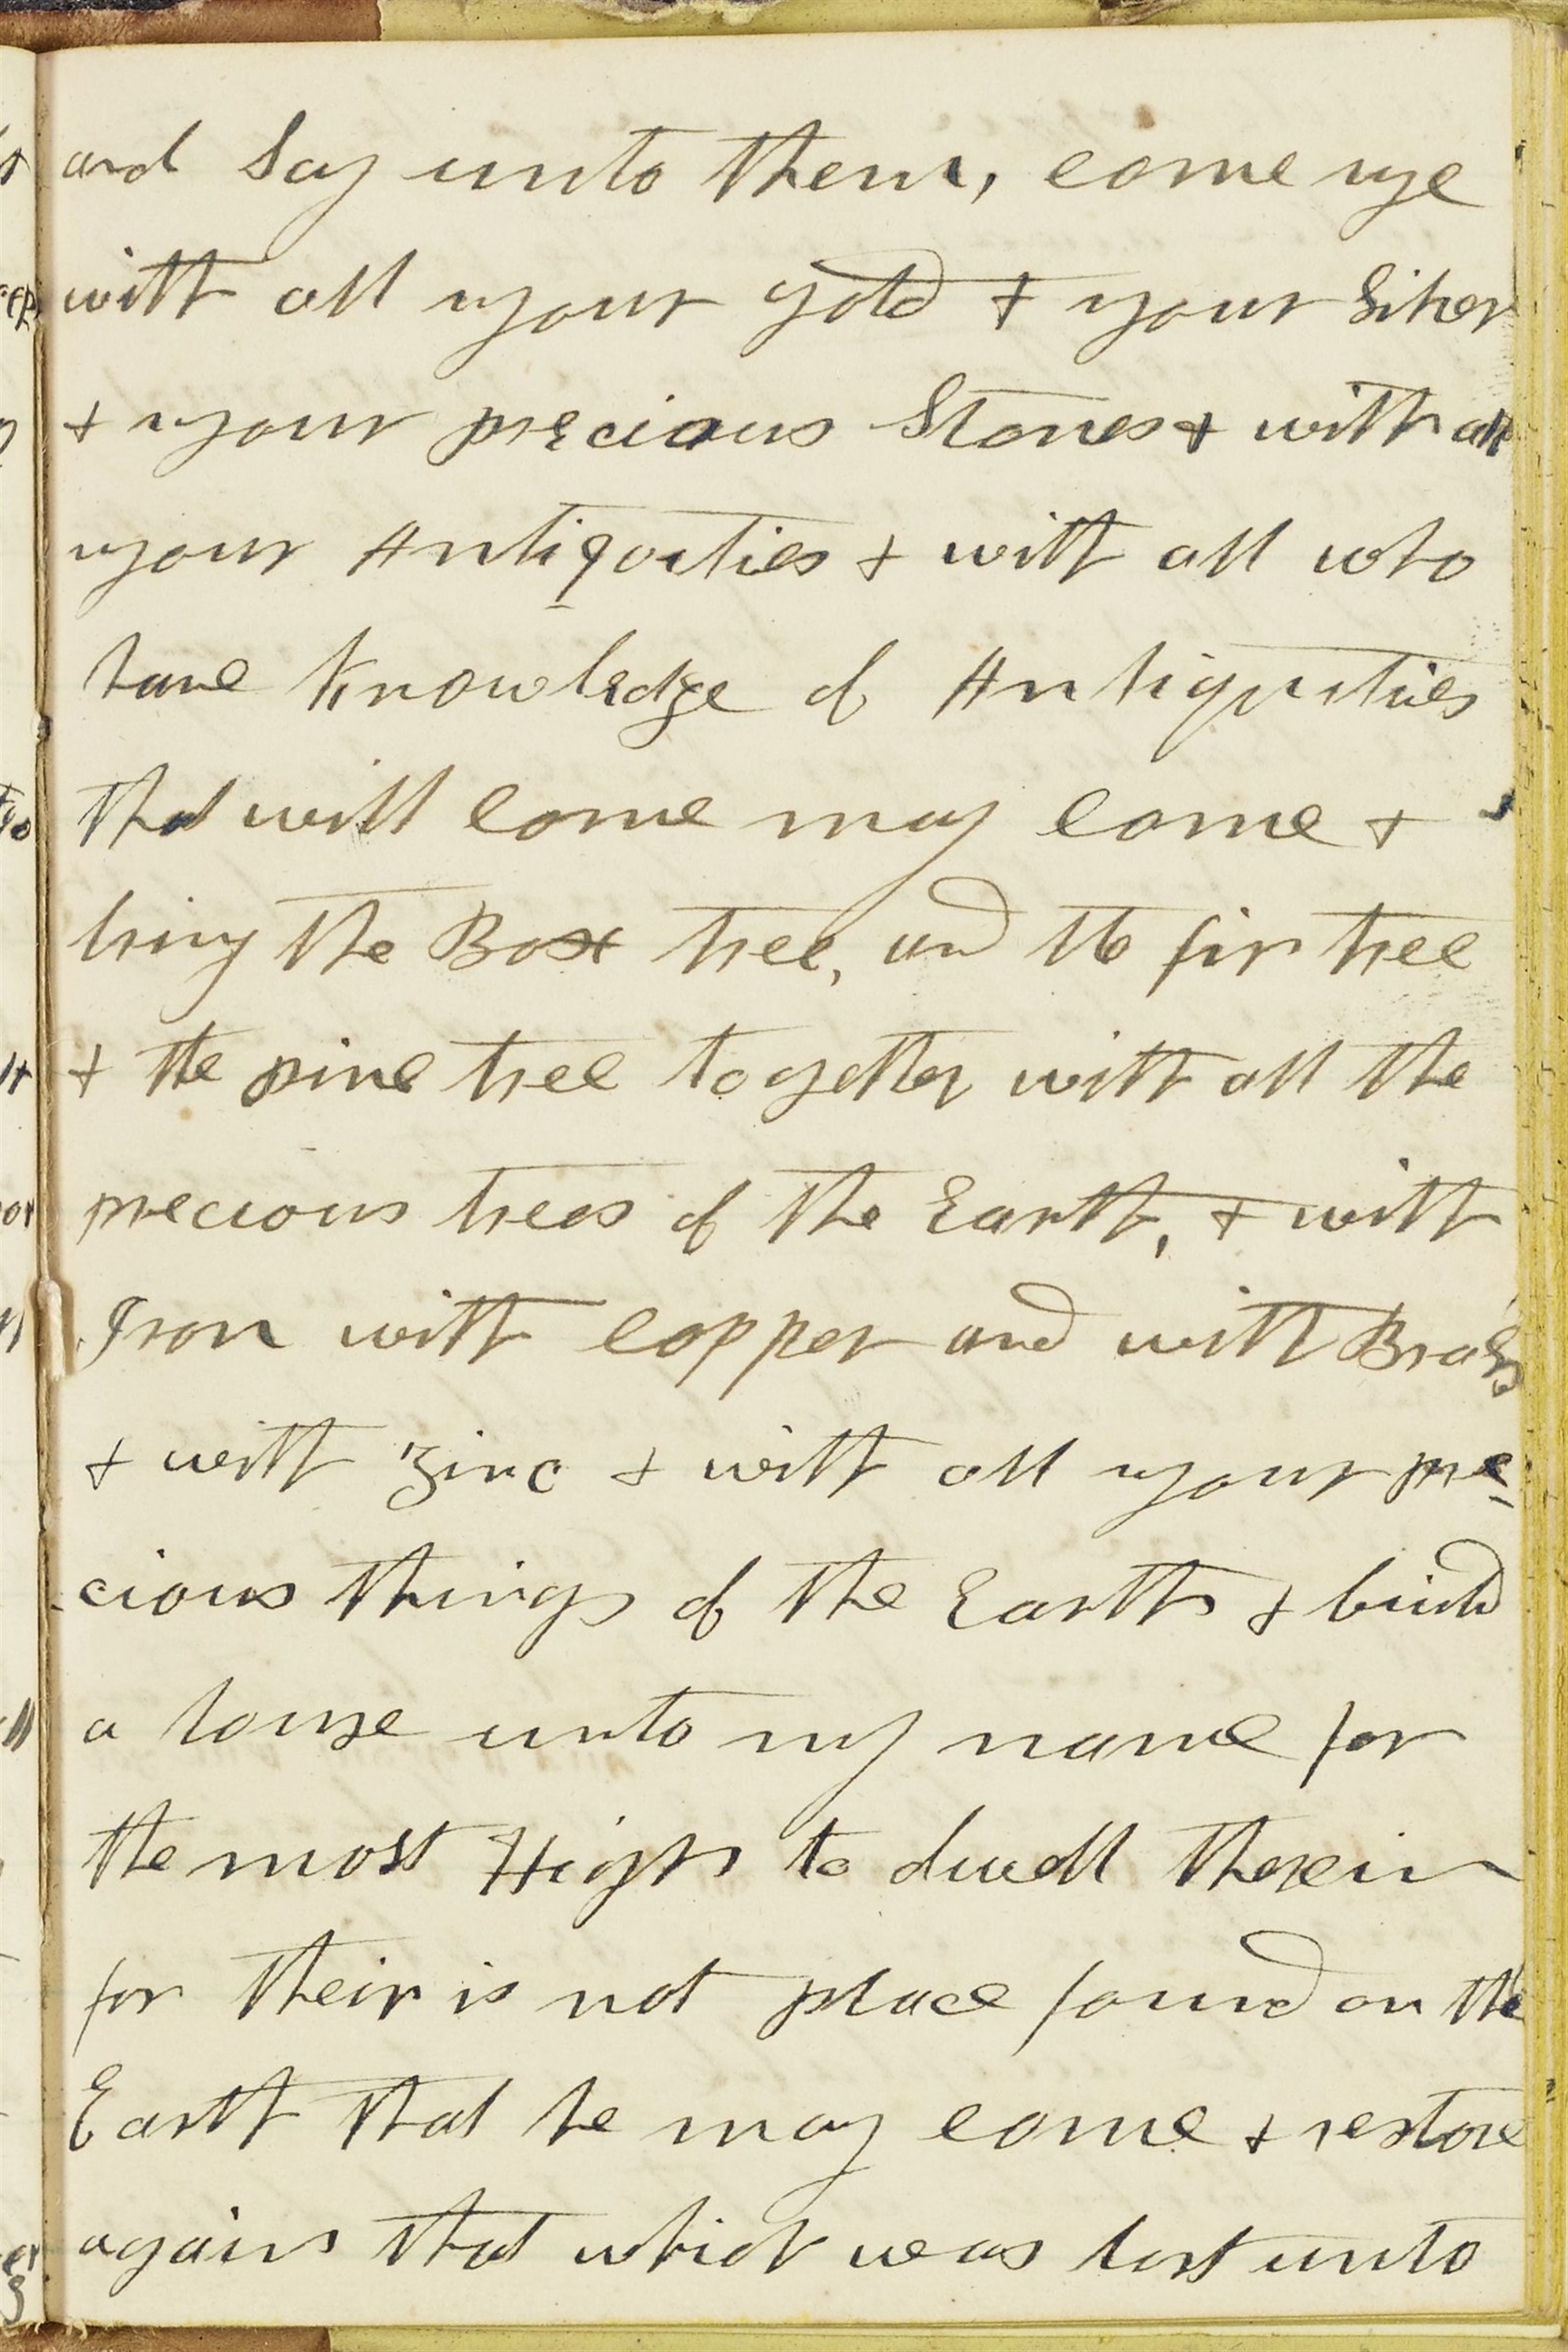 and Say unto them, come ye
with all your gold & your Silver
& your precious Stones & with all
your Antiquities & with all who
have knowledge of Antiquities
that will come may come &
bring the Box tree, and the fir tree
& the pine tree together with all the
precious trees of the Earth, & with
Iron with copper and with Brass
& with Zinc & with all your pre=
=cious things of the Earth & build
a house unto my name for
the most High to dwell therein
for their is not place found on the
Earth that he may come & restore
again that which was lost unto